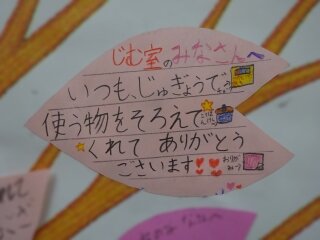 じむ室のみなさんへ
いつも、じゅぎょうで
使う物をそろえて
くれて ありがとう
ございます
おりがみ